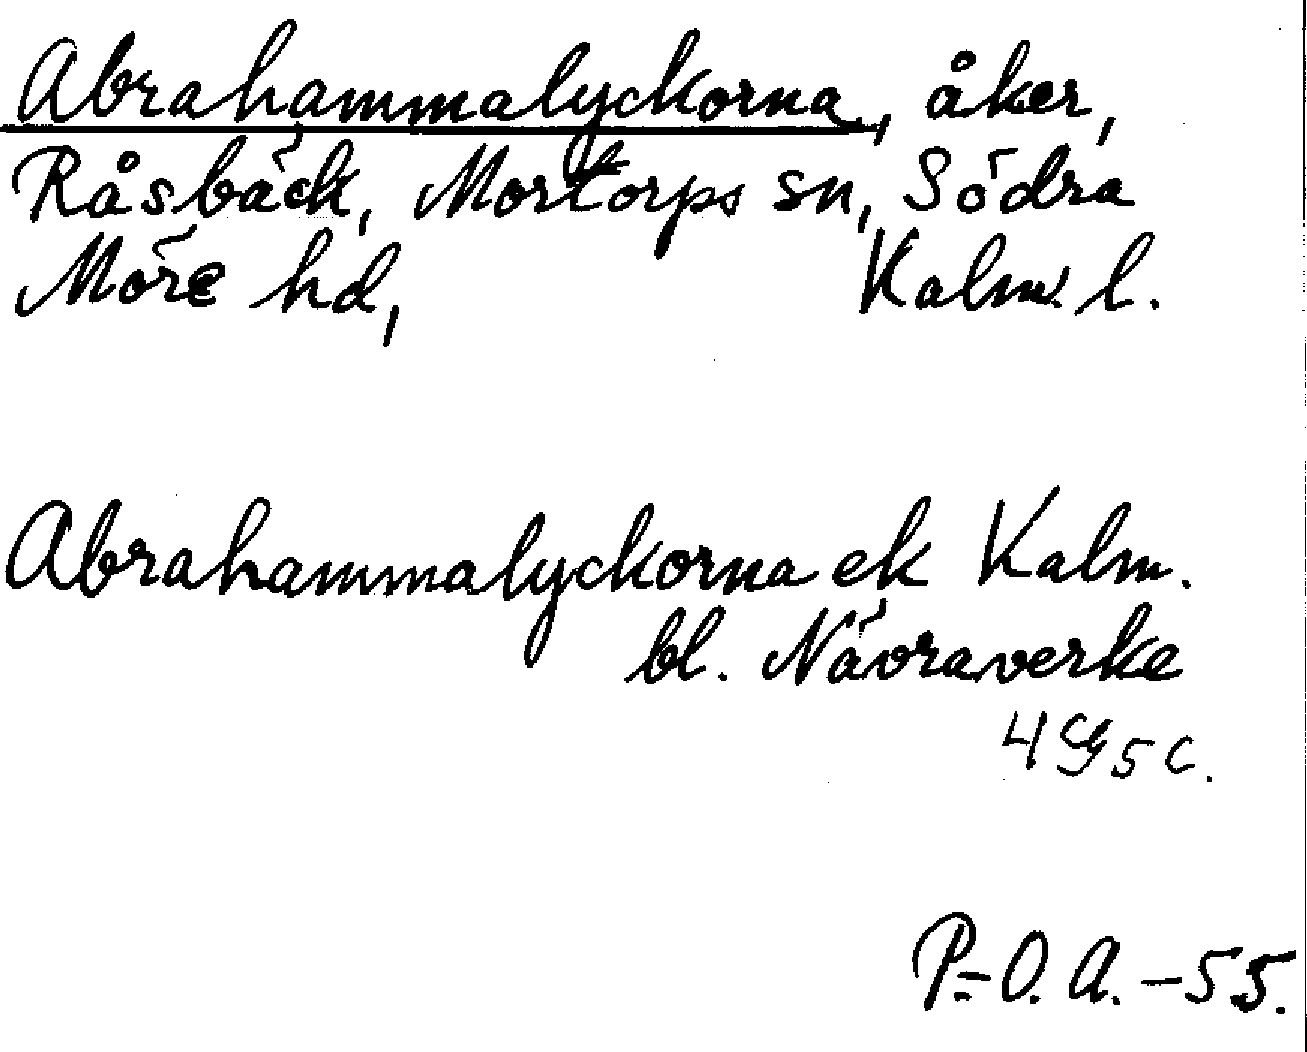 Abrahammalyckorna, åker,
Råsbäck, Mortorps sn, Södra
Möre hd, Kalm. l.
Abrahammalyckorna ek Kalm.
bl. Nävraverke
4 G 5 c.
P-O. A. – 55.